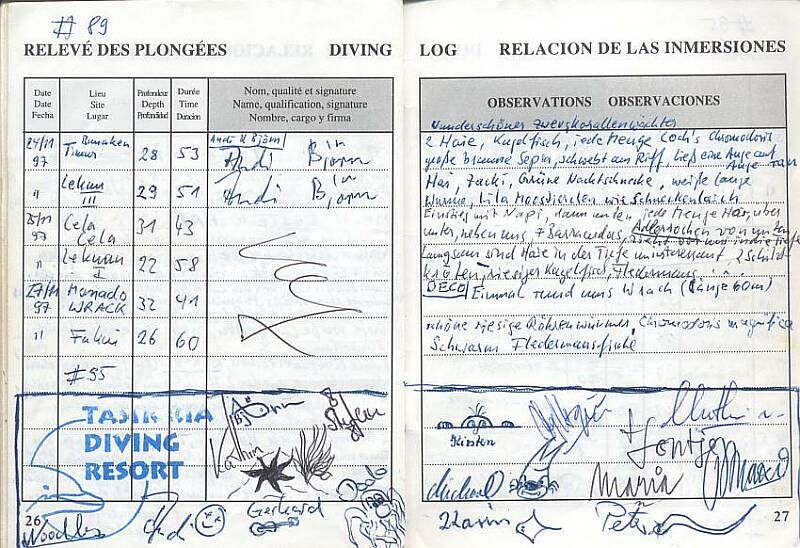 # 89
RELEVÉ DES PLONGÉES DIVING
Date Lieu Profondeur Durée Nom, qualité et signature
Date Site Depth Time Name, qualification, signature
Fecha Lugar Profundidad Duracion Nombre, cargo y firma
24/11 Bunaken Andi & Björn
97 Timur 28 53 Andi Björn
" Lekuan III 29 51 Andi Björn
25/11 97 Cela Cela 31 43
" Lekuan I 22 58
27/11 97 Manado WRACK 32 41
" Fukui 26 60
#95
DIVING
RESORT
Kathrin
Gerhard
Dodo
26
Andi
LOG RELACION DE LAS INMERSIONES
OBSERVATIONS OBSERVACIONES
Wunderschöner Zwergkorallenwächter
2 Haie, Kugelfisch, jede Menge Loch's Chromodoris
große braune Sepia, schwebt am Riff, ließ eine Auge auf Auge ran
Hai, Zacki, Grüne Nachtschnecke, weiße lange
Würmer, Lila Moostierchen wie Schneckenlaich
Einstieg mit Napi, dann unten jede Menge Hai, über
unter, neben uns, 7 Barracudas, Adlerrochen von unten
zieht vor uns in die Tiefe
Langsam sind Haie in der Tiefe uninteressant, 2 Schild-
kröten, riesiger Kugelfisch, Fledermaus . . .
DECO Einmal rund ums Wrack (Länge 60m)
schöne riesige Röhrenwürmer, Chromodoris magnifica
Schwarm Fledermausfische
Kirsten
Michael
Maria
Karin
Petra
27